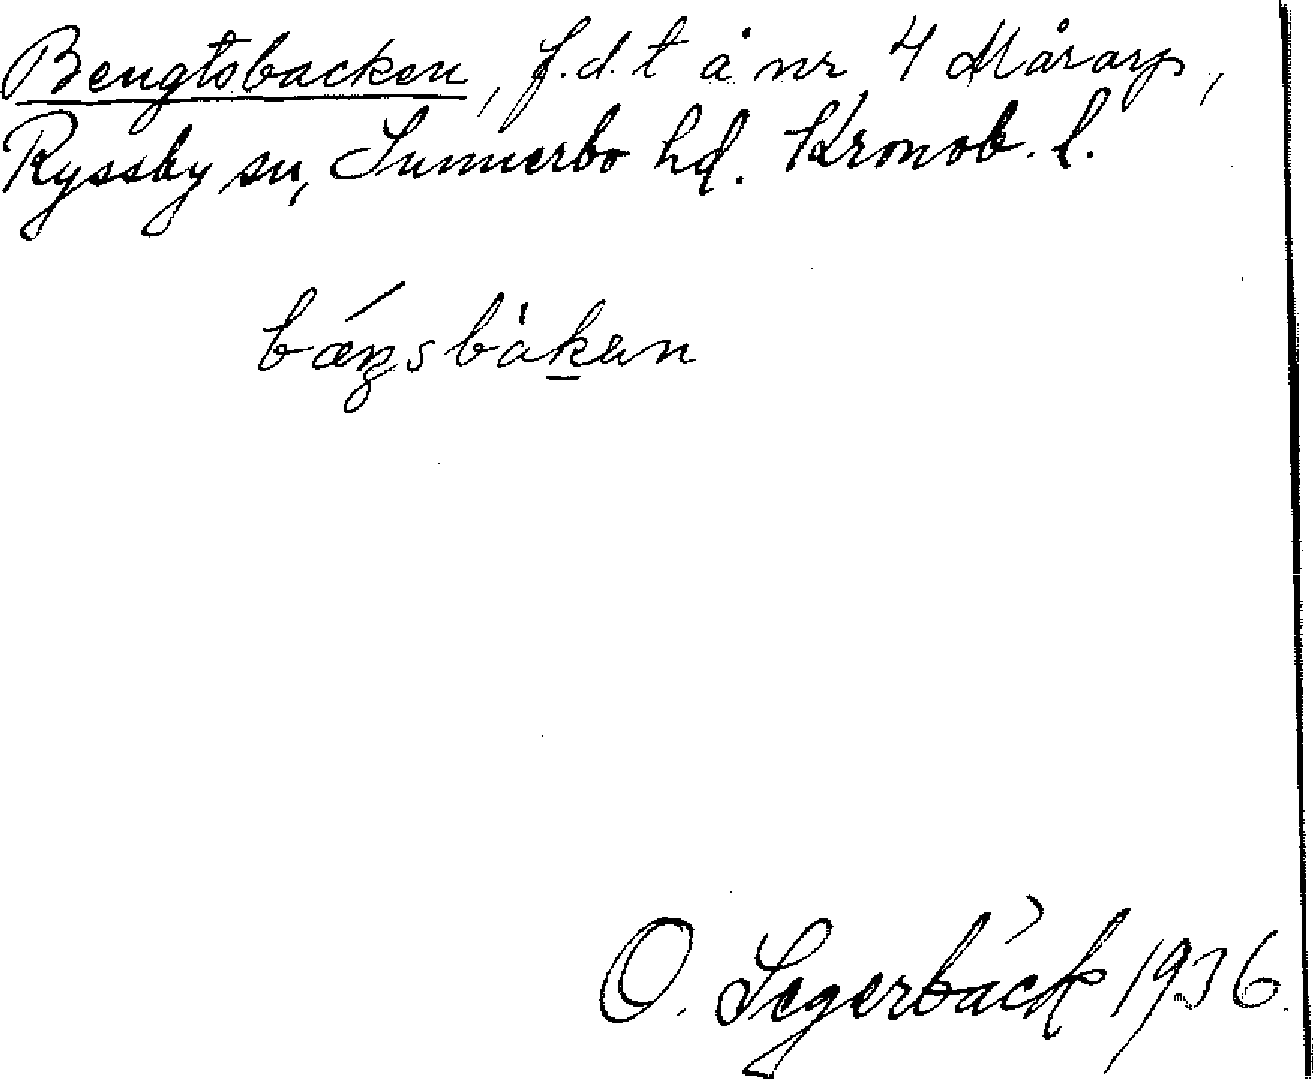 Bengtsbacken, f.d.t å nr 4 Mårarp,
Ryssby sn, Sunnerbo hd. Kronob. l.
bǽŋsbàkan
O. Segerbäck 1936.